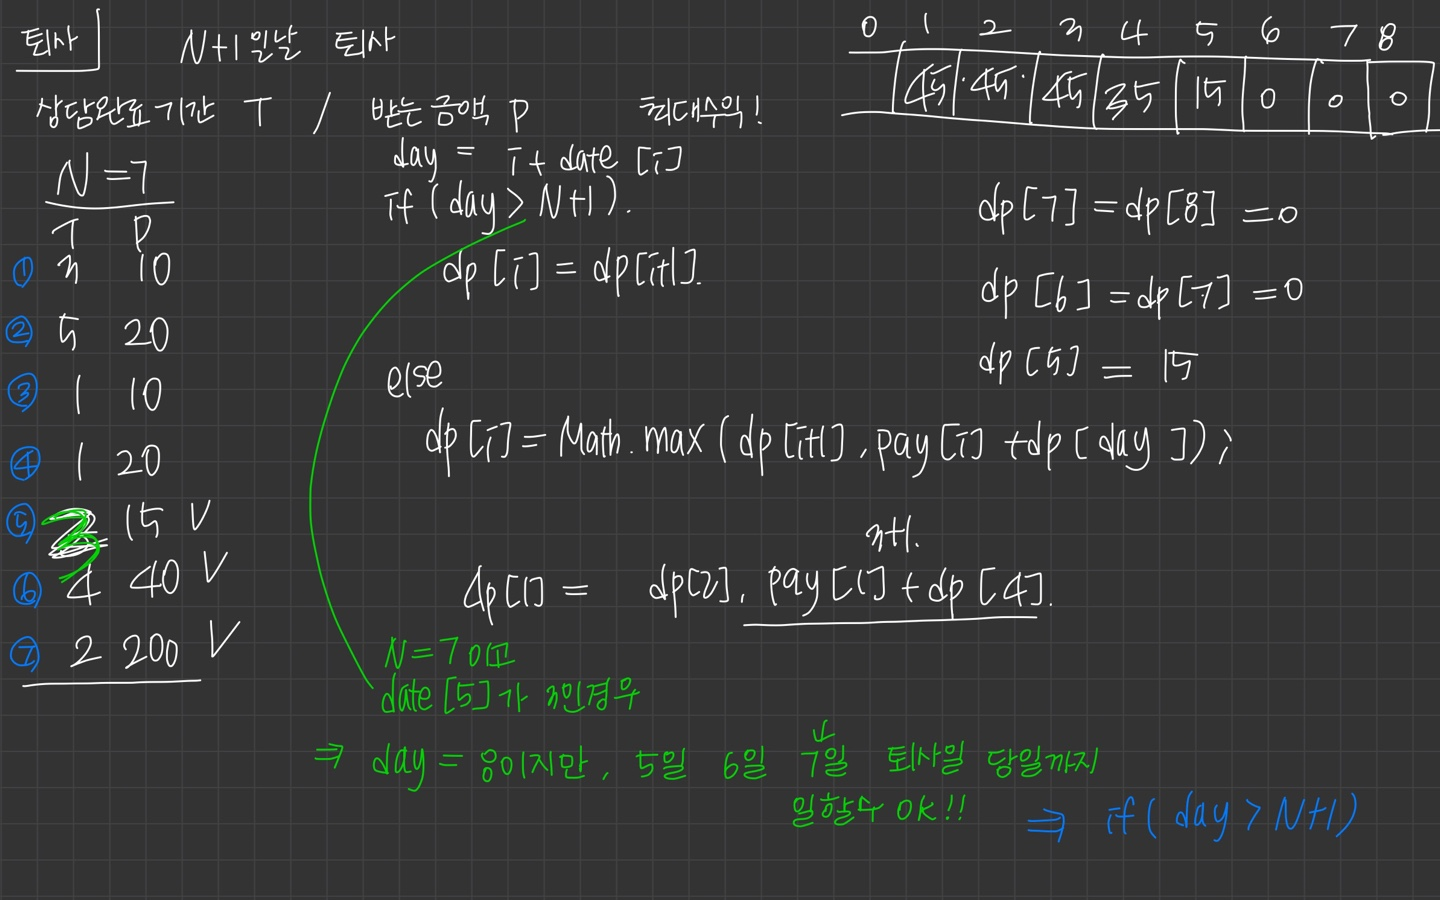 퇴사 N+1일날 퇴사
상담완료기간 T / 받는금액 P 최대수익!
0 1 2 3 4 5 6 7 8
45 45 45 35 15 0 0 0
N=7
T P
① 3 10
② 5 20
③ 1 10
④ 1 20
⑤ 3 15 V
⑥ 4 40 V
⑦ 2 200 V
day = i + date [i]
if (day > N+1).
dp [i] = dp[i+1].
else
dp [i] = Math.max ( dp [i+1] , pay [i] + dp [ day ] ) ;
dp [7] = dp [8] = 0
dp [6] = dp [7] = 0
dp [5] = 15
3+1.
dp [1] = dp[2], pay [1] + dp [4].
N = 7 이고
date [5] 가 3인경우
⇒ day = 8이지만, 5일 6일 7일 퇴사일 당일까지
일할수 OK!!
⇒ if ( day > N+1)